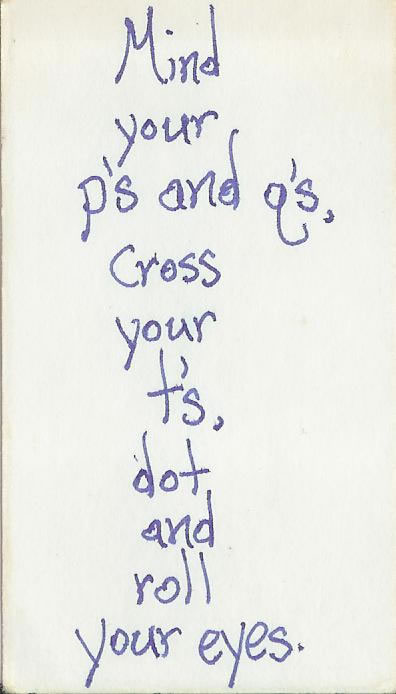 Mind
your
p's and q's,
Cross
your
t's,
dot
and
roll
your eyes.